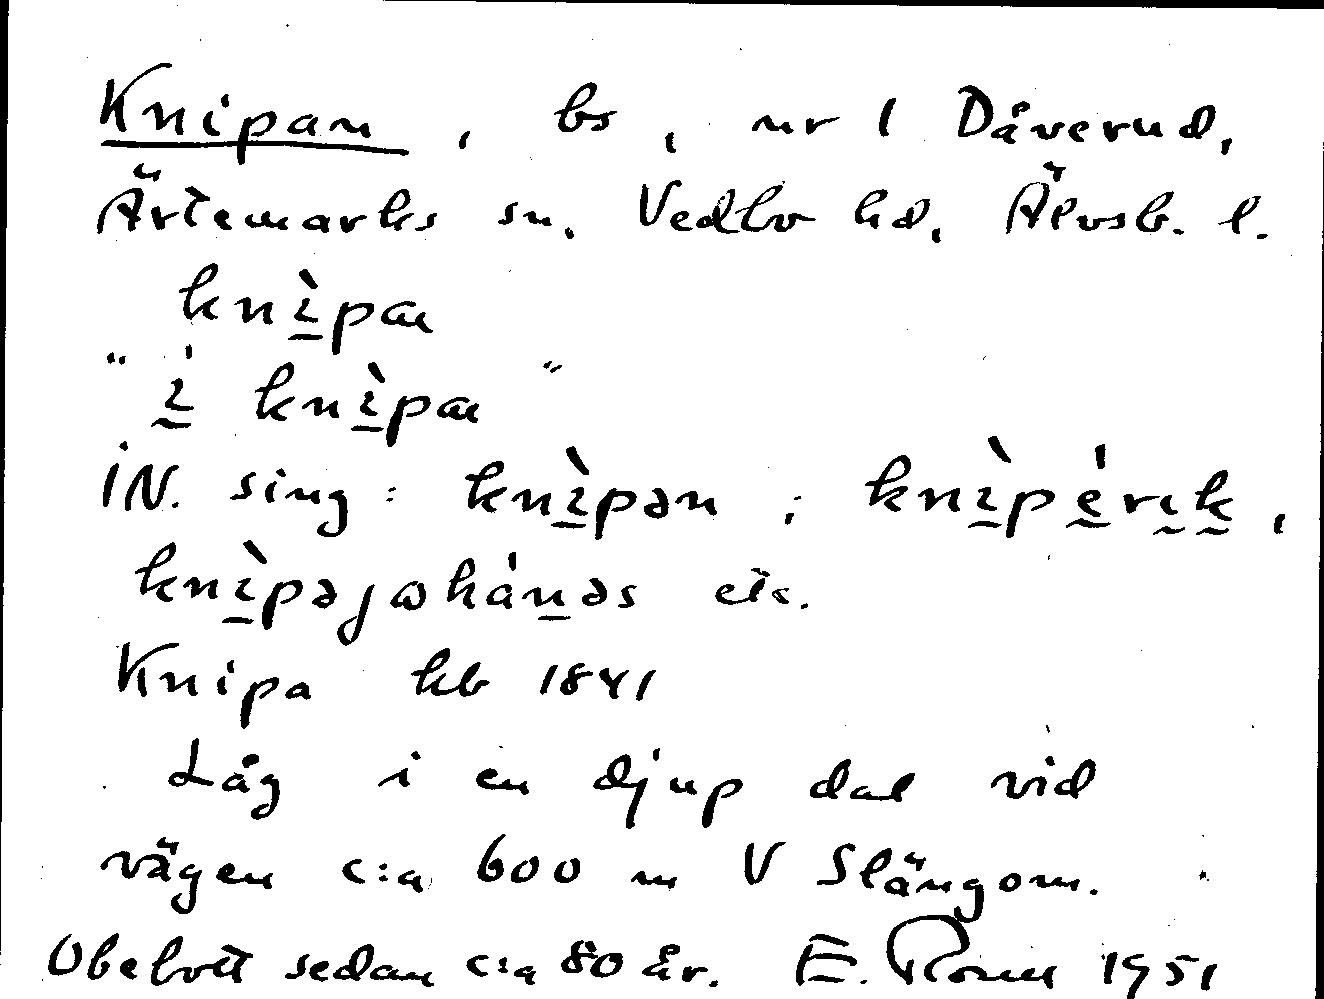 Knipan, bs, nr 1 Dåverud,
Ärtemarks sn. Vedbo hd, Älvsb. l.
knìpa
"i knìpa"
IN. sing: knìpən; knìpérik,
knìpəjωhánəs etc.
Knipa kb 1841
Låg i en djup dal vid
vägen c:a 600 m V Slängom.
Obebott sedan c:a 80 år. E. 1951